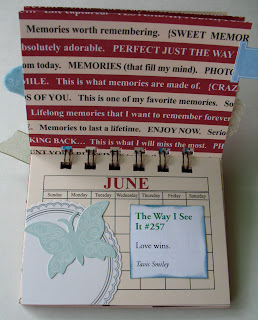 Memories worth remembering. {SWEET MEMOR
bsolutely adorable. PERFECT JUST THE WAY
om today. MEMORIES (that fill my mind). PHOT
MILE. This is what memories are made of. {CRAZ
DS OF YOU. This is one of my favorite memories. So
Lifelong memories that I want to remember forever
Memories to last a lifetime. ENJOY NOW. Serio
KING BACK... This is what I will miss the most. PH
JUNE
Sunday Monday Tuesday Wednesday Thursday Friday Saturday
The Way I See
It #257
Love wins.
Tavis Smiley